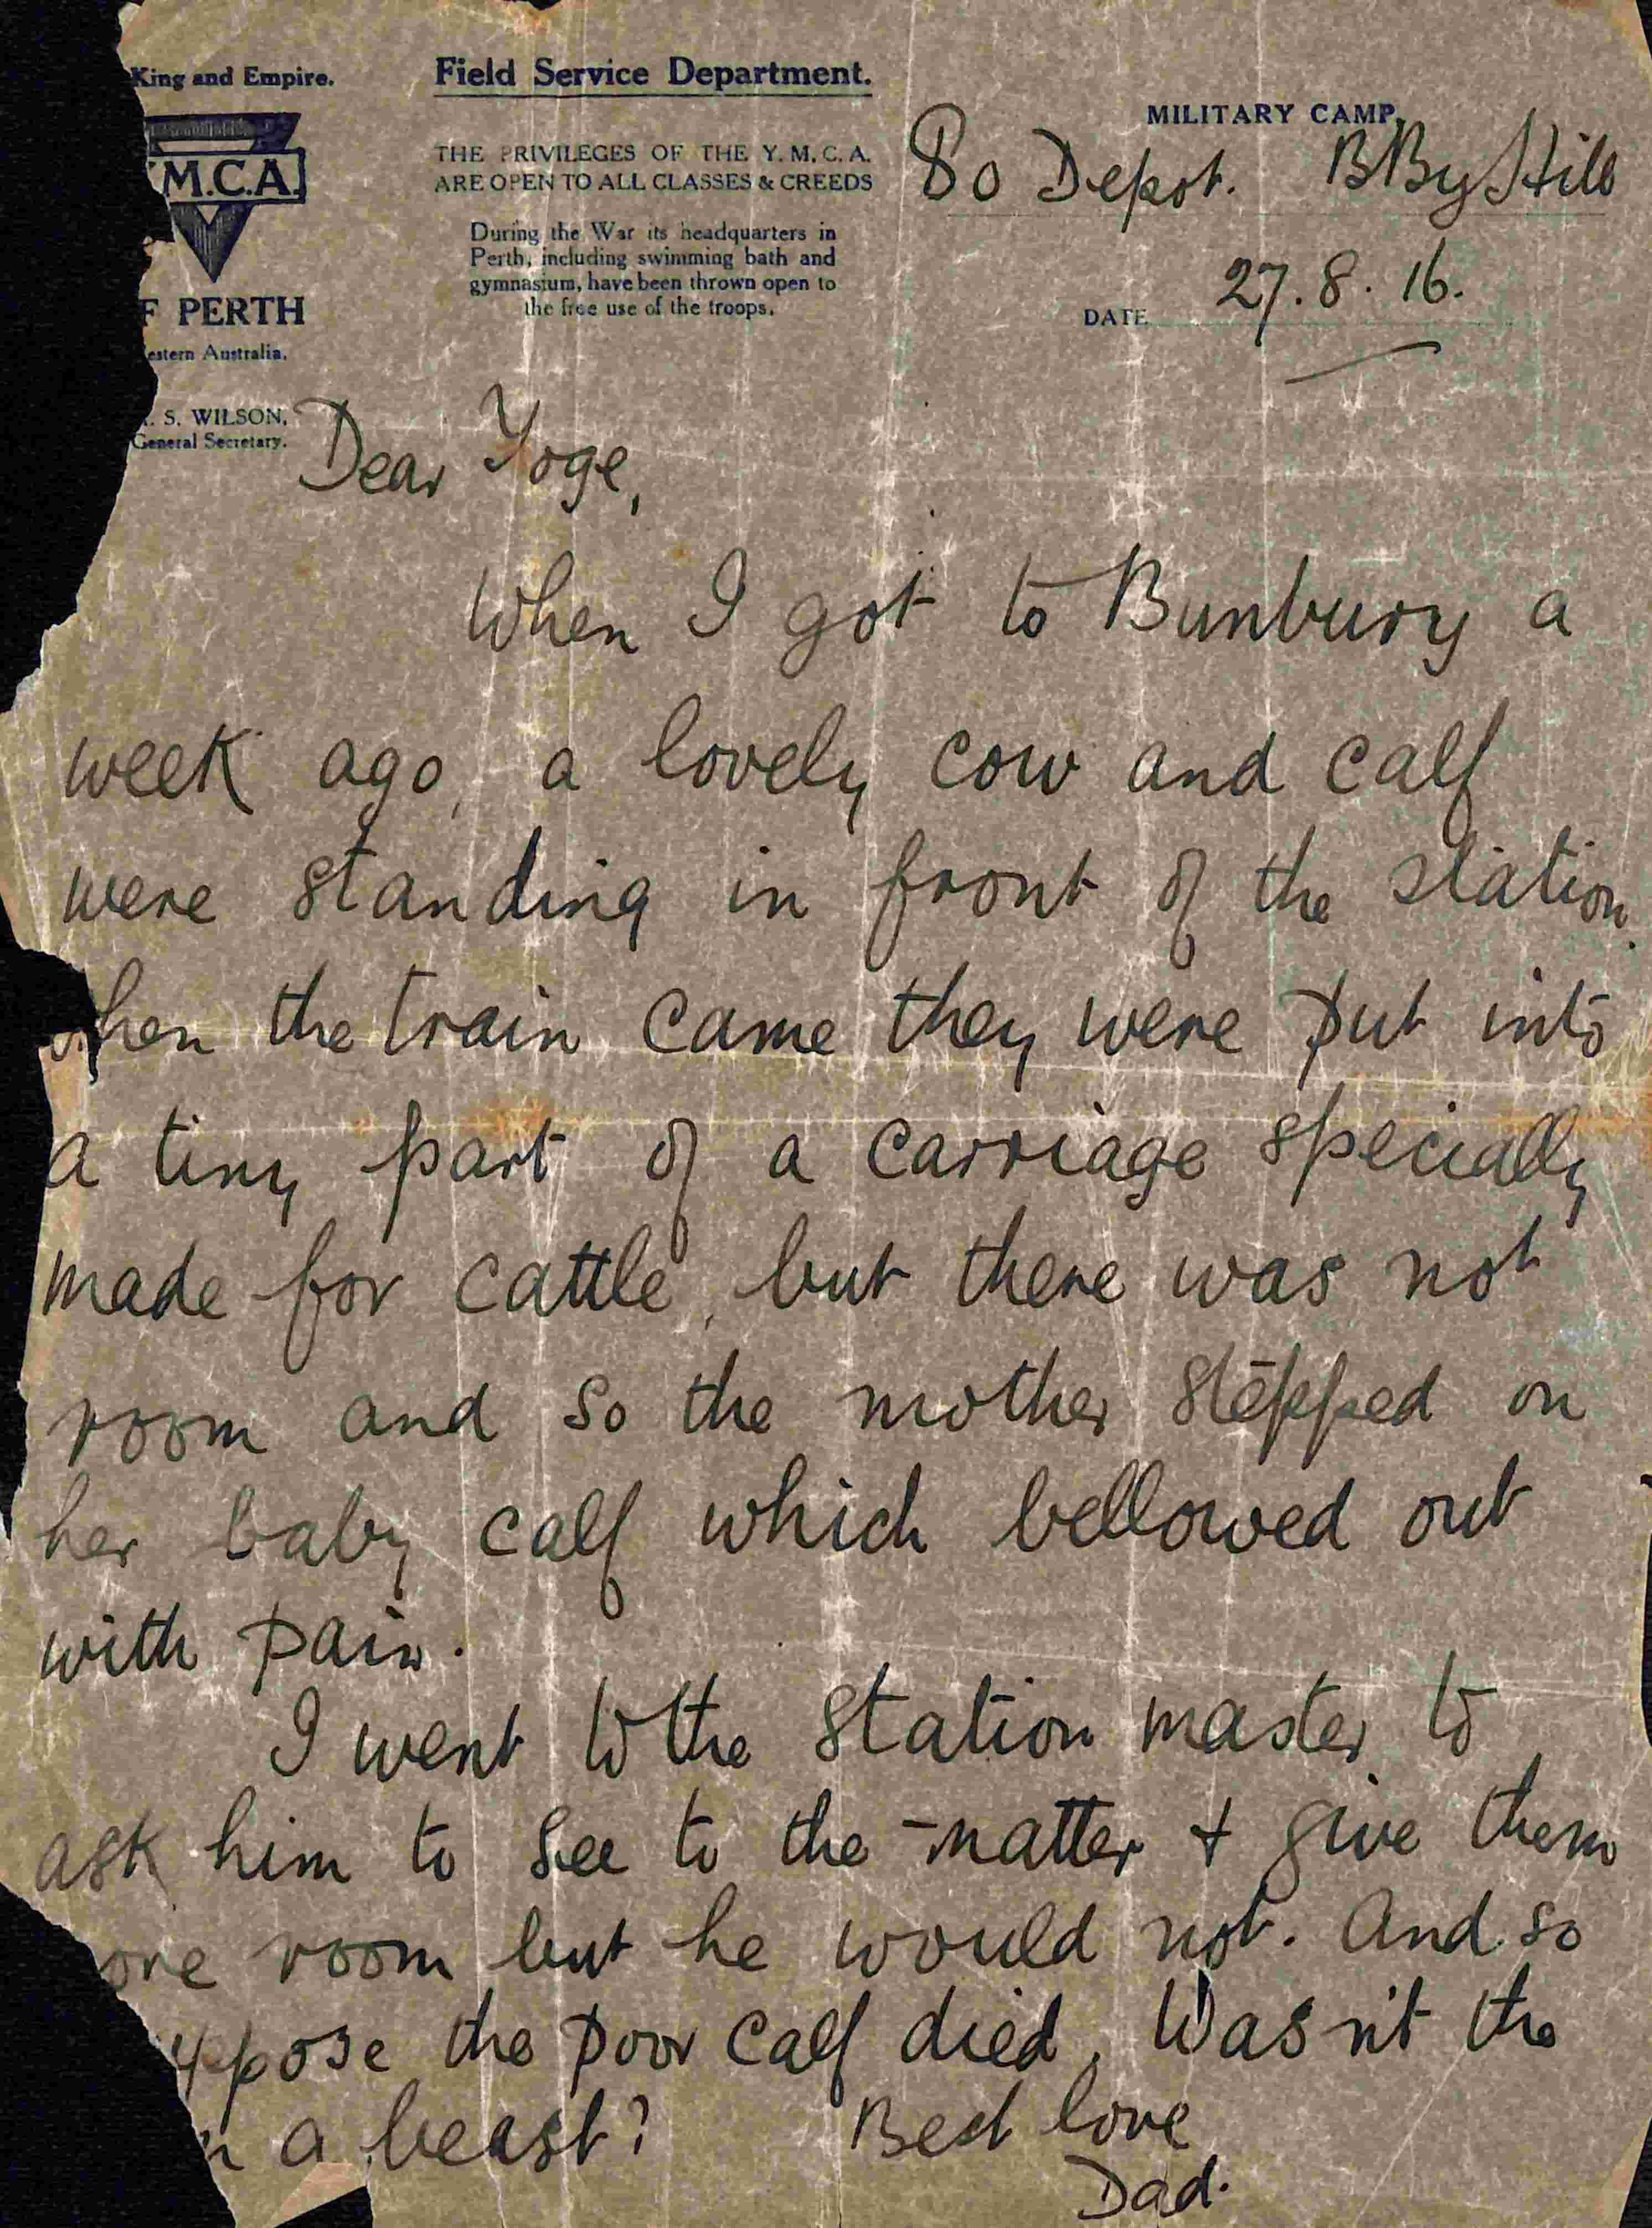 King and Empire.
Y.M.C.A.
F PERTH
estern Australia.
. S. WILSON,
General Secretary.
Field Service Department.
THE PRIVILEGES OF THE Y. M. C. A.
ARE OPEN TO ALL CLASSES & CREEDS
During the War its headquarters in
Perth, including swimming bath and
gymnasium, have been thrown open to
the free use of the troops.
MILITARY CAMP,
80 Depot. BBy Hill
DATE 27.8.16.
Dear Yoge,
When I got to Bunbury a
week ago, a lovely cow and calf
were standing in front of the station.
when the train came they were put into
a tiny part of a carriage specially
made for cattle, but there was not
room and so the mother stepped on
her baby calf which bellowed out
with pain.
I went to the station master to
ask him to see to the matter + give them
ore room but he would not. And so
uppose the poor calf died. Wasn't the
n a beast? Best love
Dad.